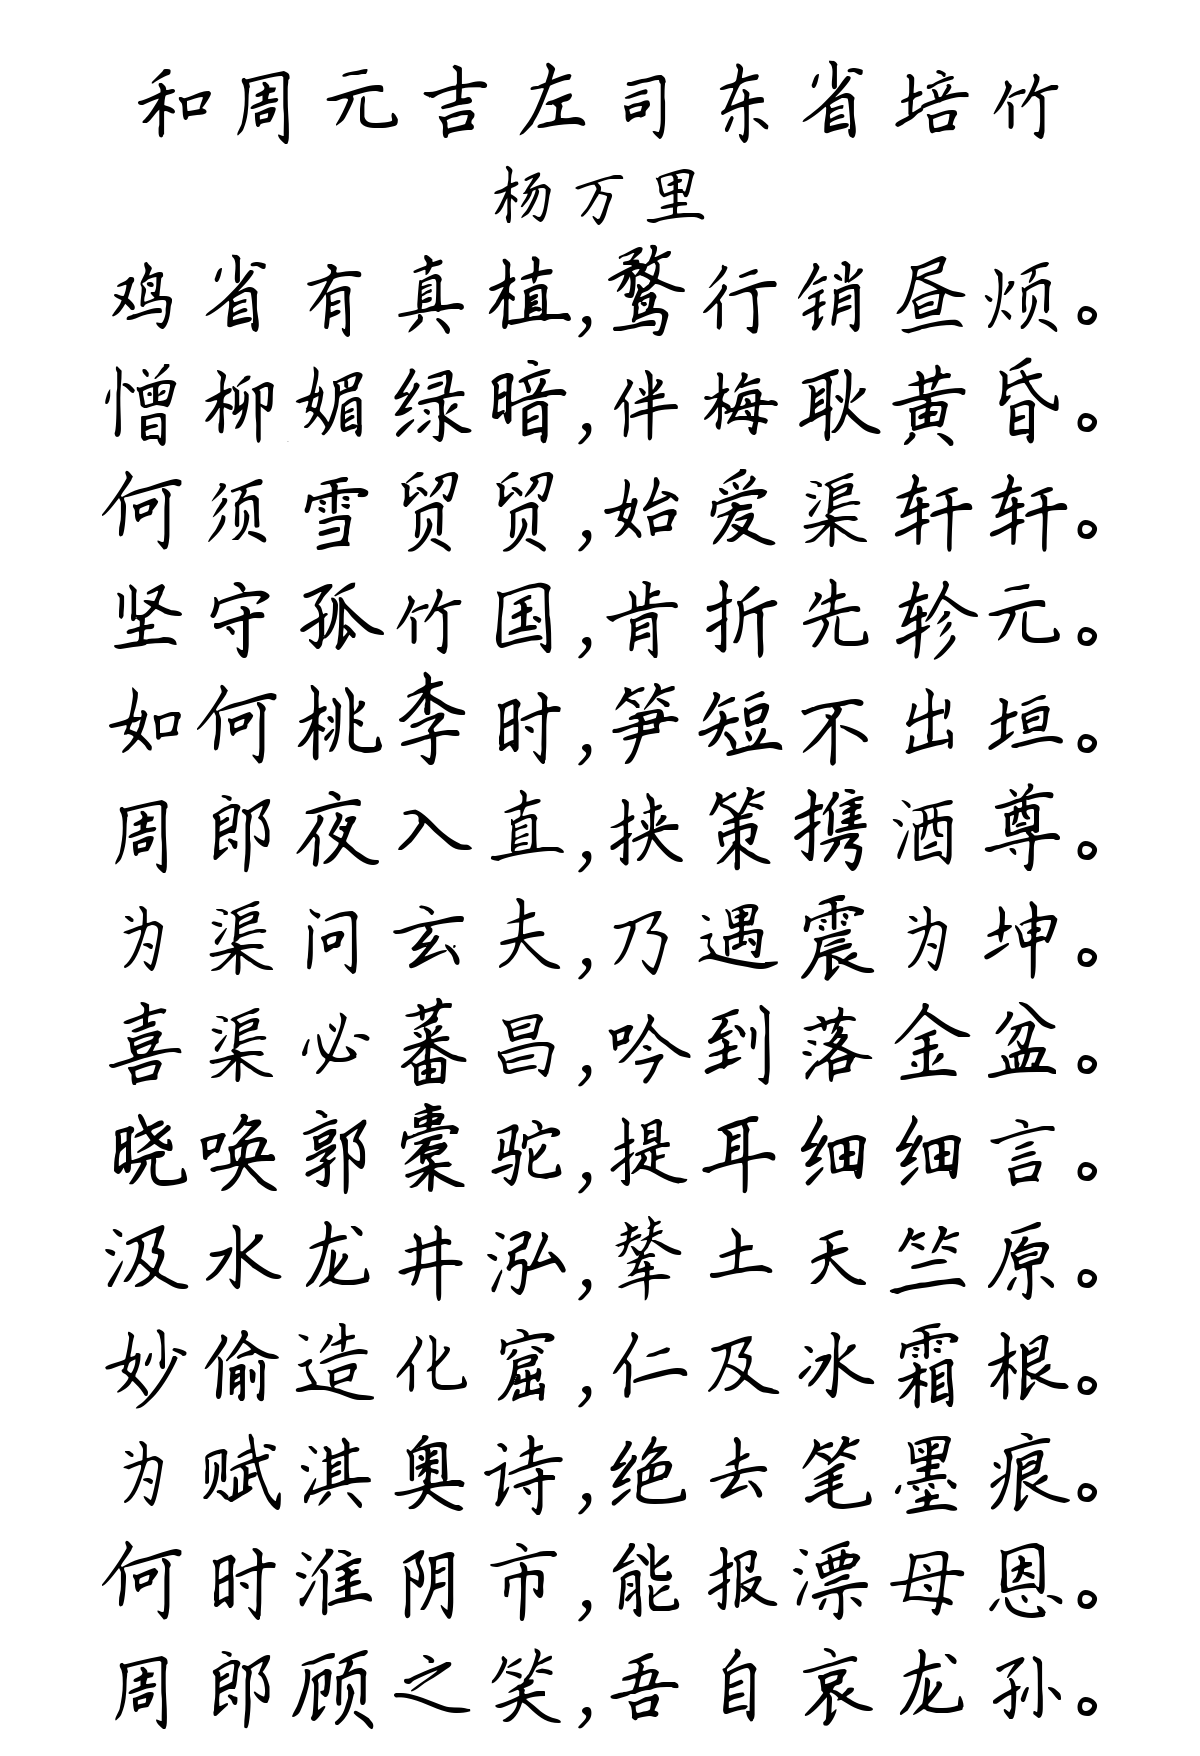 和周元吉左司东省培竹
杨万里
鸡省有真植,鹜行销昼烦。
憎柳媚绿暗,伴梅耿黄昏。
何须雪贸贸,始爱渠轩轩。
坚守孤竹国,肯折先轸元。
如何桃李时,笋短不出垣。
周郎夜入直,挟策携酒尊。
为渠问玄夫,乃遇震为坤。
喜渠必蕃昌,吟到落金盆。
晓唤郭橐驼,提耳细细言。
汲水龙井泓,辇土天竺原。
妙偷造化窟,仁及冰霜根。
为赋淇奥诗,绝去笔墨痕。
何时淮阴市,能报漂母恩。
周郎顾之笑,吾自哀龙孙。